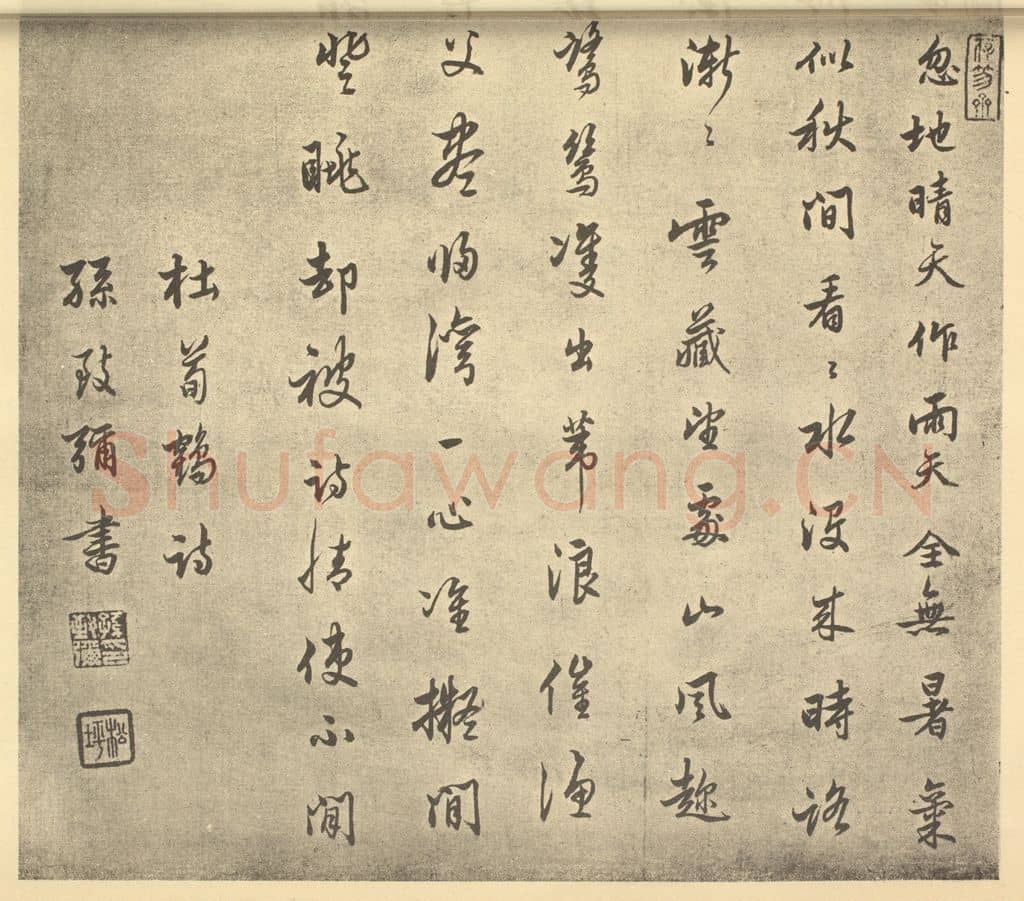 忽地晴天作雨天全無暑氣
似秋間看〻水沒來時路
漸〻雲藏望處山風趂
鷺鷥雙出葦浪催漁
父盡歸灣一心准擬閒
登眺却被詩情使不閒
杜荀鶴詩
孫致彌書
松坪
Shufawang.CN